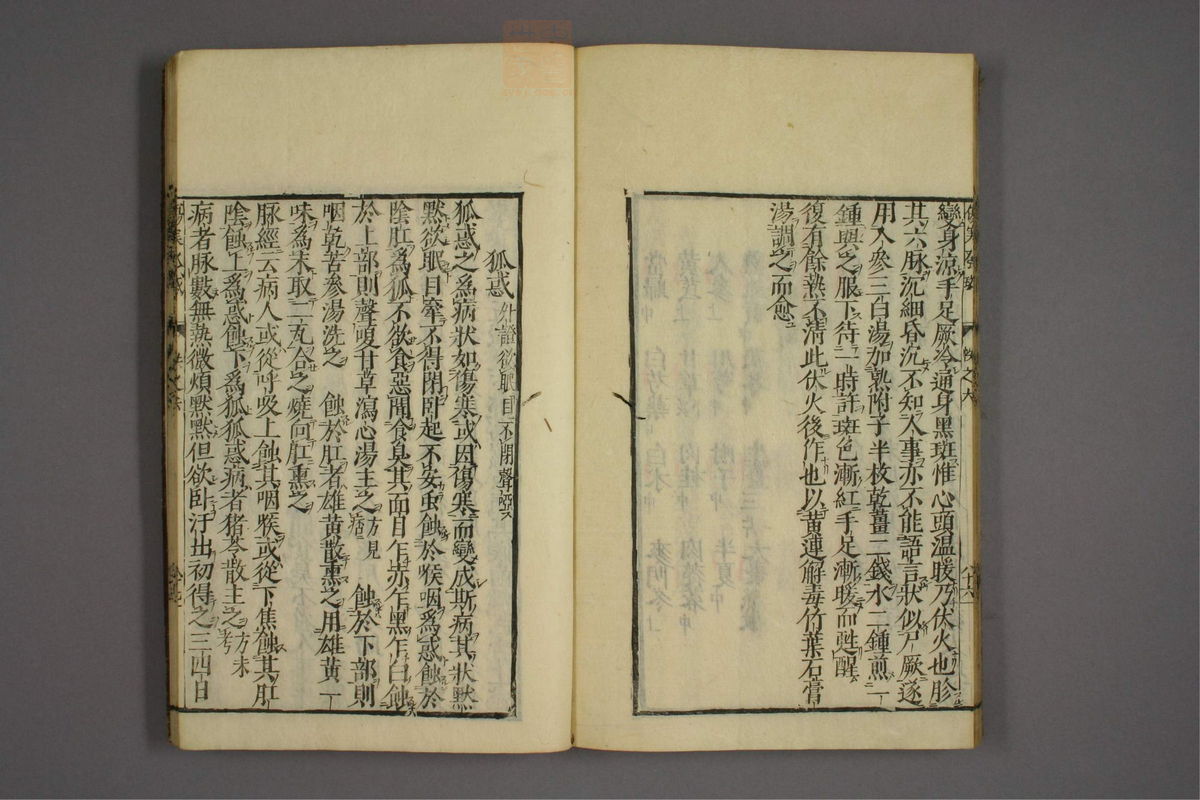 變身涼手足厥冷通身黑斑惟心頭温暖乃伏火也胗
其六脉沉細昏沉不知人事亦不能語言狀似尸厥遂
用人參三白湯加熟附子半枚乾薑二錢水二鍾煎一
鍾與之服下待一時許斑色漸紅手足漸暖而甦醒
復有餘熱不清此伏火後作也以黄連解毒竹葉石膏
湯調之而愈
狐惑 外證欲眠目不閉聲啞
狐惑之為病狀如傷寒或因傷寒而變成斯病其狀默
默欲眠目不得閉卧起不安虫蝕於喉咽為惑蝕於
陰肛為狐不欲食惡聞食臭其面目乍赤乍黑乍白蝕
於上部則聲嗄甘草瀉心湯主之方見 蝕於下部則
咽乾苦參湯洗之 蝕於肛者雄黄散熏之用雄黄一
味為末取二瓦合之燒向肛熏之
脉經云病人或從呼吸上蝕其咽喉或從下焦蝕其肛
陰蝕上為惑蝕下為狐狐惑病者猪苓散主之方未考
病者脉數無熱微煩默默但欲卧汗出初得之三四日